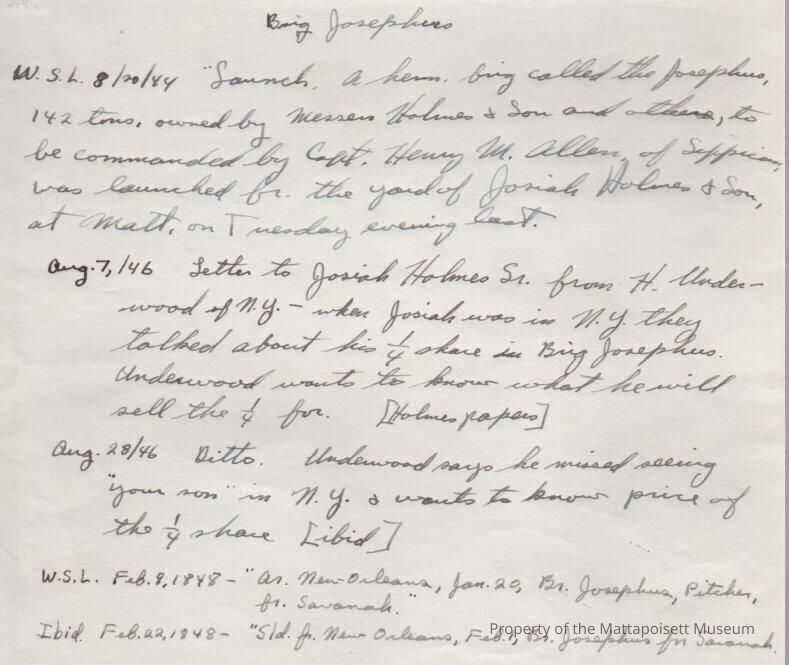 Brig Josephus
W.S.L. 8/20/44 "Launch. A herm. brig called the Josephus,
142 tons, owned by Messers Holmes & Son and others, to
be commanded by Capt. Henry M. Allen, of Sippican,
was launched fr. the yard of Josiah Holmes & Son,
at Matt. on Tuesday evening last.
Aug. 7, /46 Letter to Josiah Holmes Sr. from H. Under-
wood of N.Y. - when Josiah was in N.Y. they
talked about his 1/4 share in Brig Josephus.
Underwood wants to know what he will
sell the 1/4 for. [Holmes papers]
Aug. 28/46 Ditto. Underwood says he missed seeing
"your son" in N.Y. & wants to know price of
the 1/4 share [ibid]
W.S.L. Feb. 9, 1848 - "Ar. New Orleans, Jan. 20, Br. Josephus, Pitcher,
fr. Savanah."
Ibid. Feb. 22, 1848 - "Sld. fr. New Orleans, Feb. 1, Br. Josephus for Savanah.
Property of the Mattapoisett Museum